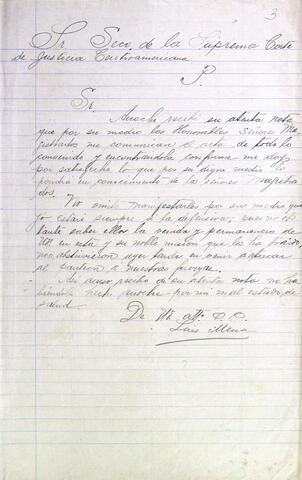 3
Sr. Seco. de la Suprema Corte
de Justicia Centroamericana
P.
Sr.
Anoche recibí su atenta nota
que por su medio los Honorables Señores Ma-
gistrados me comunican el acta de todo lo
conocido y encontrandola conforme me doy
por satisfecho lo que por su digno medio lo
pondra en conocimiento de los señores Magistra-
dos.
No omito manifestarles por su medio que
yo estaré siempre á la defensiva; pues no obs-
tante saber ellos la venida y permanencia de
Uds. en esta y su noble mision que los ha traido,
no
al nuestras
Mi aviso recibo de su atenta nota no ha
anoche por mi mal estado de
salud.
De Ud. atto. S. S.
Luis Mena